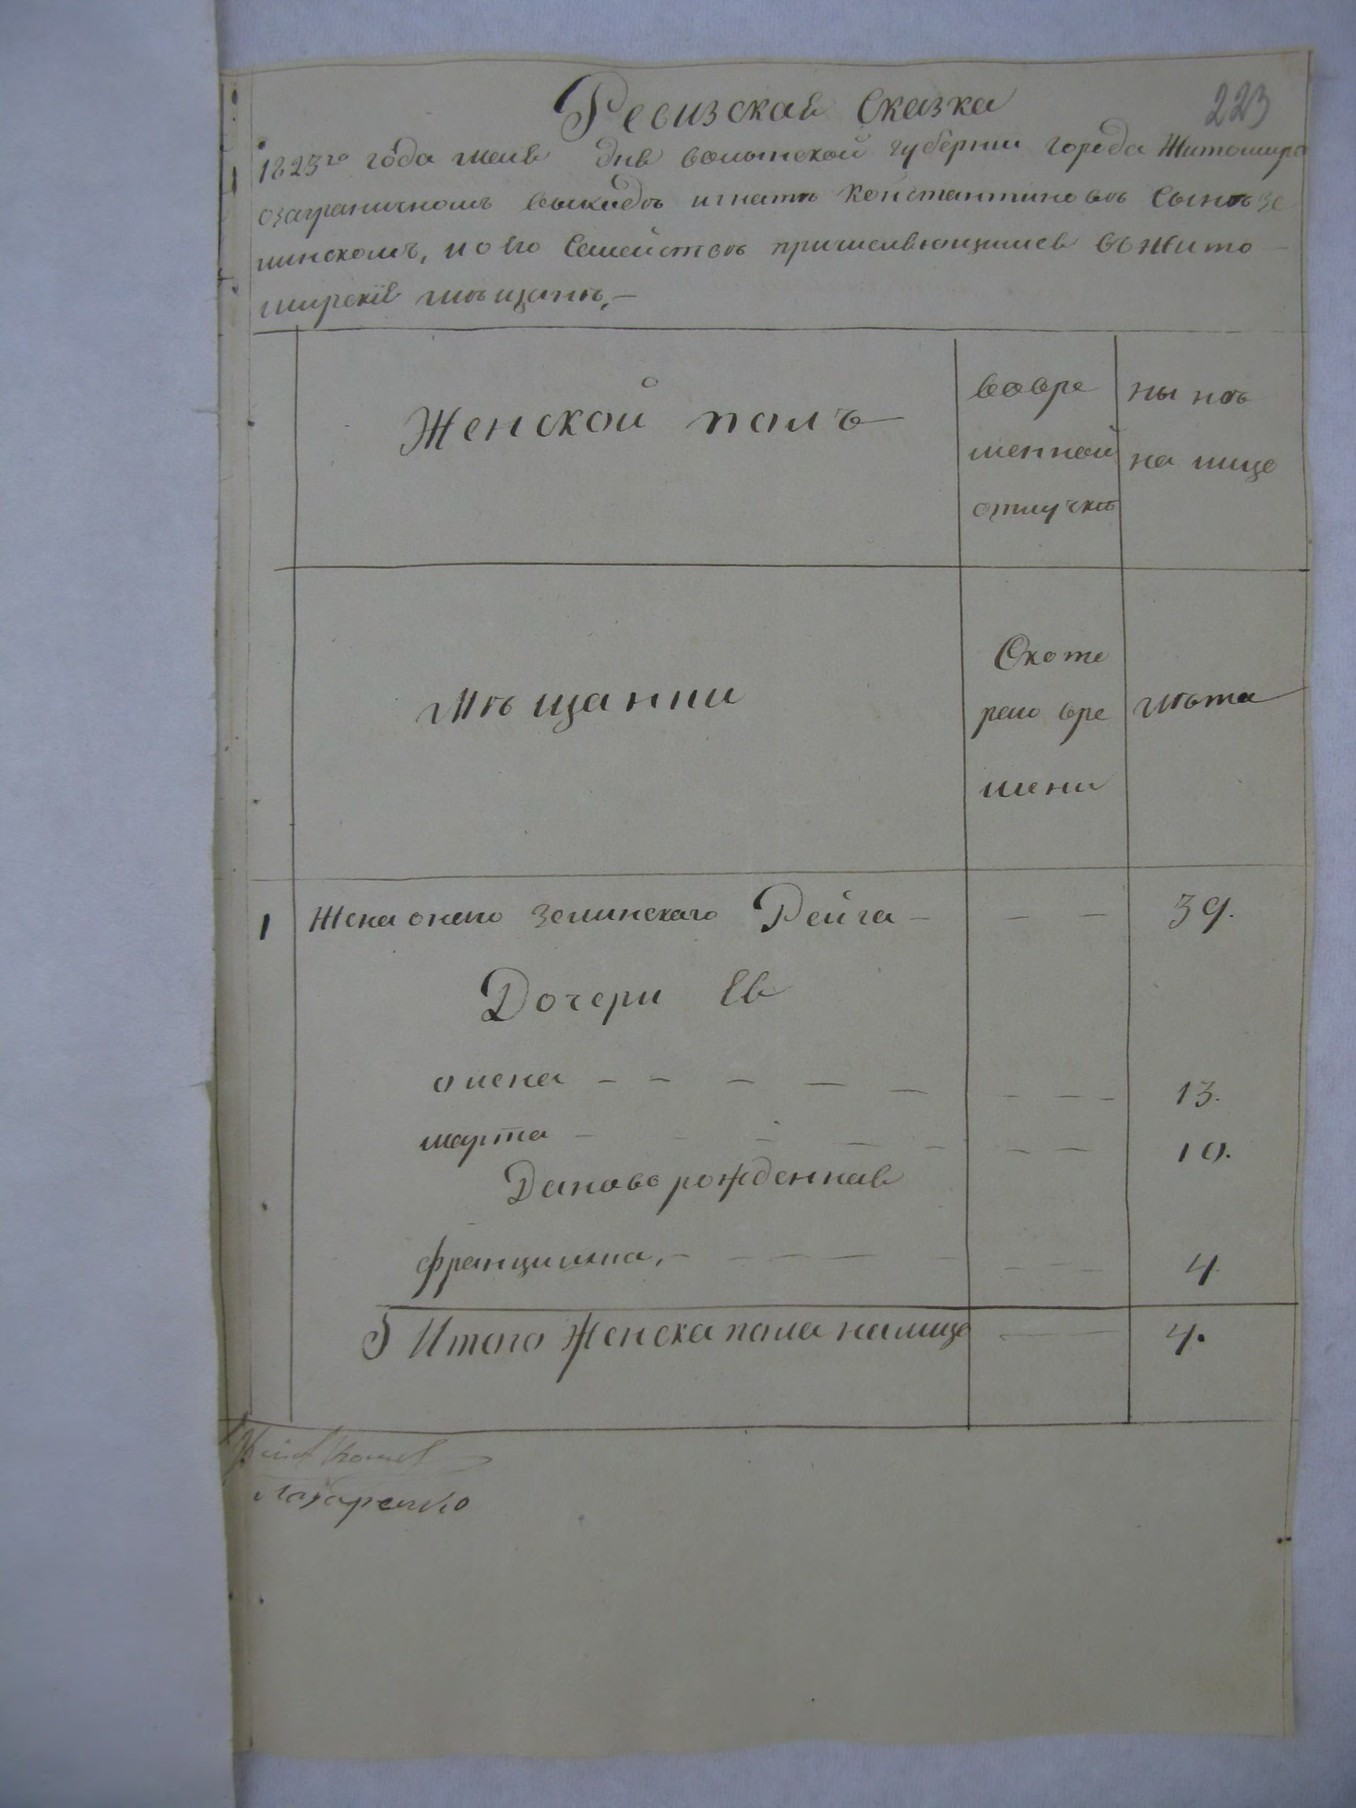 223
Ревизская Сказка
1823го года маия дня волынской губернии города Житомира
озаграничномъ выходцѣ игнатѣ Константиновѣ Сынѣ Зе
линскомъ, и о Его Семействѣ причисляющимся въ Жито
мирскїя мѣщанѣ,—
Женской полъ
вовре
менной
отлучкѣ
ны нѣ
на лице
Мѣщанки
Скоте
раго вре
мени
лѣта
1 Жена онаго Зелинскаго Рейга — — — 39.
Дочери Ея
олена — — — — — — — — 13.
марта — — — — — — — 10.
Вановь рожденная
францишка, — — — — — — — 4
Итого Женска пола налице — 4.
Лазаренко